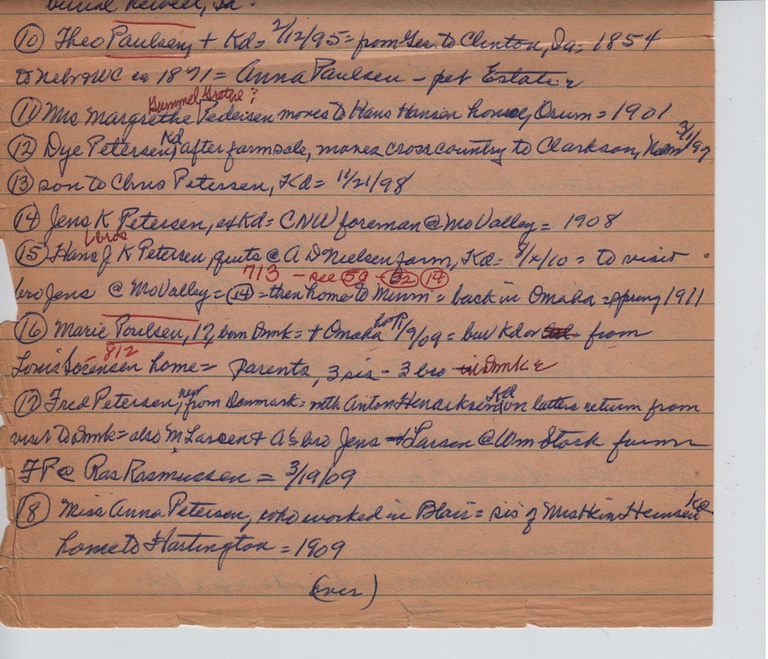 burial Newell, Ia.
(10) Theo Paulsen, + Kd = 2/12/95 = from Ger. to Clinton, Ia = 1854
to Nebr + WC ca 1871 = Anna Paulsen - pet Estate
Gummel Gretge?
(11) Mrs Margrethe Pedersen moves to Hans Hansen house, Orum = 1901
(12) Dye Petersen, Kd, after farm sale, moves cross country to Clarkson, 3/1/97
(13) son to Chris Petersen, Kd = 11/21/98
(14) Jens K Petersen, ex Kd = CNW foreman @ Mo Valley = 1908
bros
(15) Hans J K Petersen, quits @ A D Nielsen farm, Kd = to visit
713 - see 50 - 52 (14)
bro Jens @ Mo Valley = (14) = then home to Minn = back in Omaha = spring 1911
(16) Marie Poulsen, 17, born Dnmk = + Omaha 1/9/09 = bur Kd from
812
Louis Sorensen home = parents, 3 sis - 3 bro in Dnmk
(17) Fred Petersen, new from Denmark = with Anton Henricksen, Kd on latters return from
visit to Dnmk = also M Larsen + A's bro Jens Larsen @ Wm Stork farm
FP @ Ras Rasmussen = 3/19/09
(18) Miss Anna Petersen, who worked in Blair = sis of Mrs Hein Kd
home to Hartington = 1909
(over)